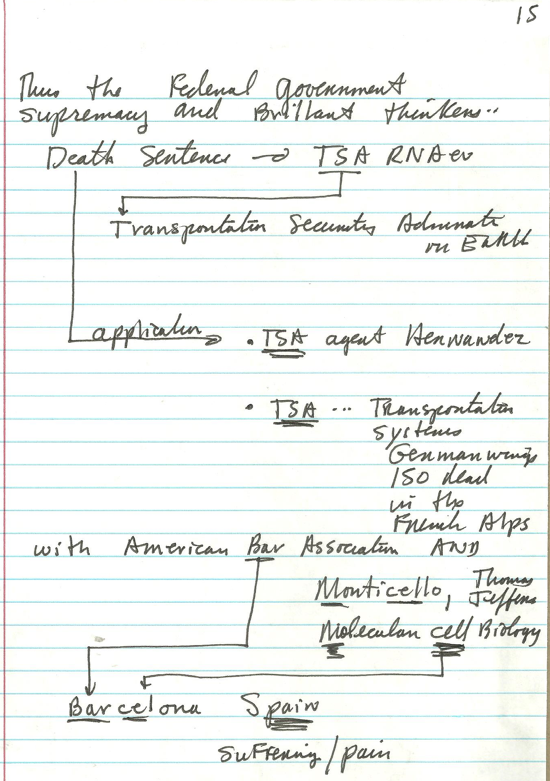 15
Thus the Federal government
supremacy and Brillant thinkers..
Death Sentence → TSA RNA ev
Transportation Security Administ
on Earth
application → • TSA agent Hernandez
• TSA ... Transportation
systems
Germanwings
150 dead
in the
French Alps
with American Bar Association AND
Monticello, Thomas
Jefferson
Molecular cell Biology
Barcelona Spain
suffering/pain